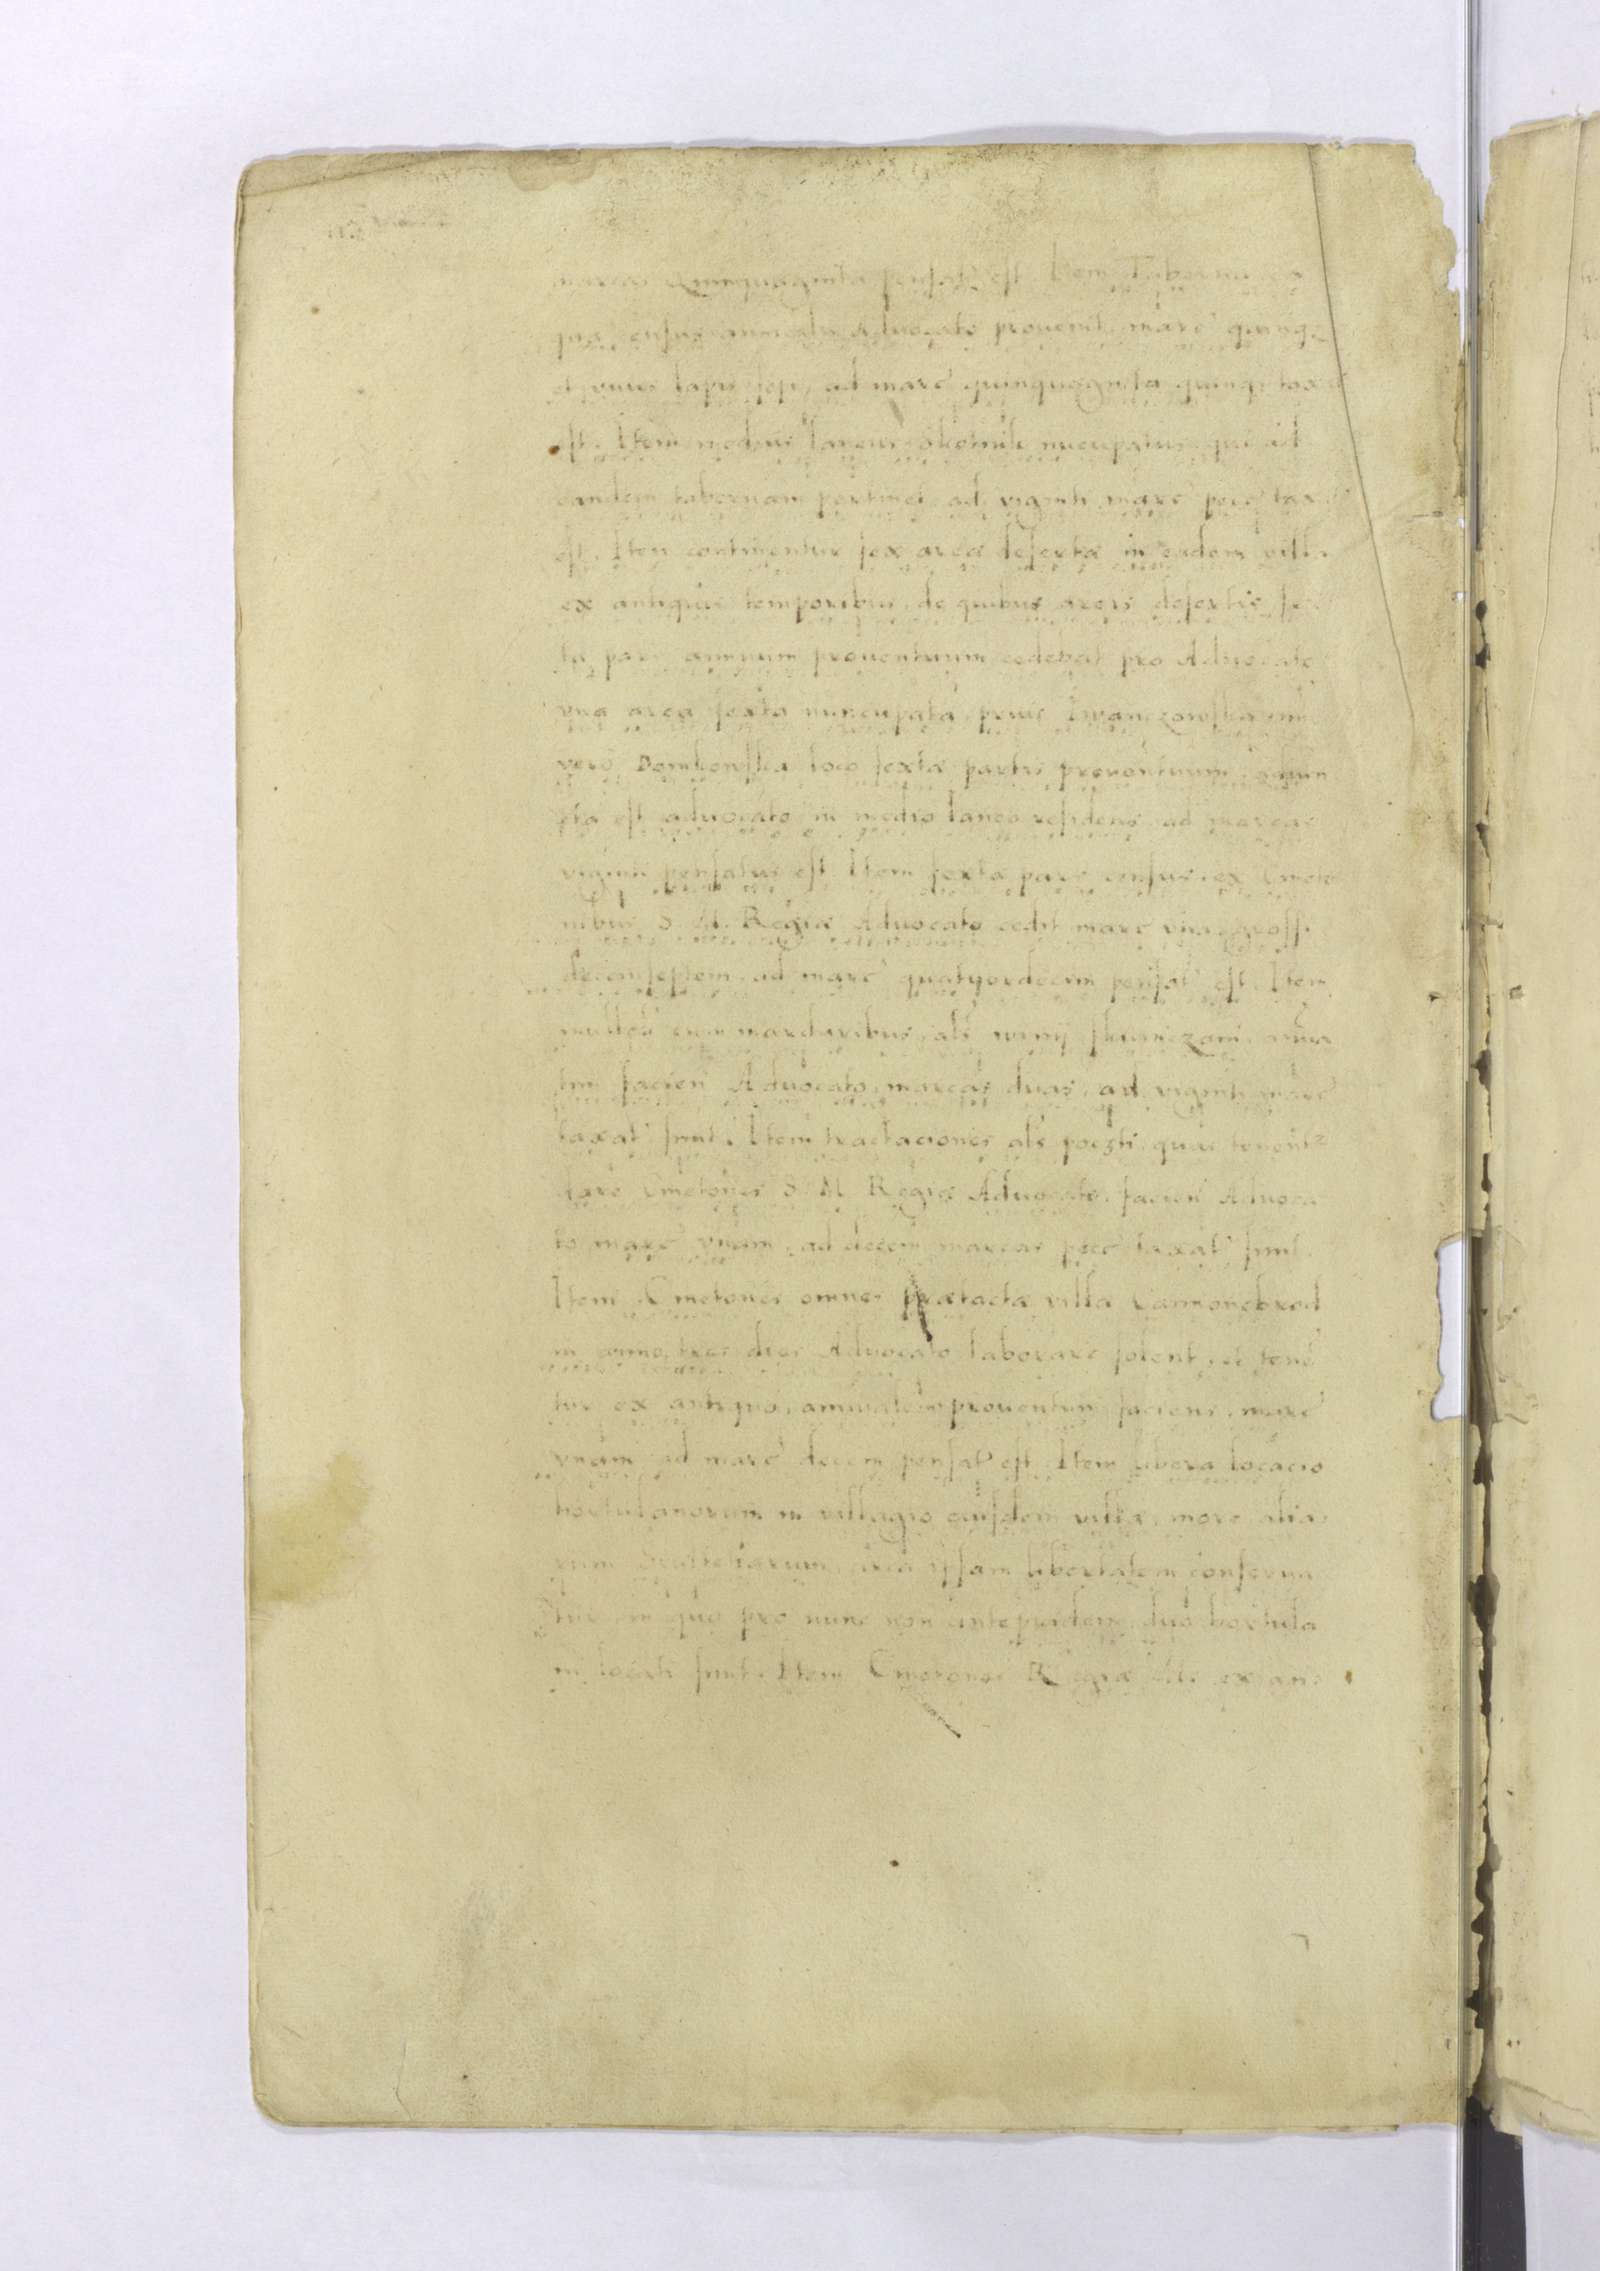 marcas Quinquaginta pensat' est. Item Taberna, ex
qua census annualis Advocato provenit, marc' quinq3
et unius lapis sepi, ad marc' quinquaginta quinq3 taxa
est. Item medius laneus Skotnik nuncupatus, qui ad
eandem tabernam pertinet, ad viginti marc' pecc' tax
est. Item continentur sex areæ desertæ in eadem villa
ex antiquis temporibus, de quibus areis desertis, sex
ta pars annuum proventuum cedebat pro Advocato
una area sexta nuncupata, prius
vero loco sextæ partis proventuum, adjun
cta est advocato, in medio laneo residens, ad marcas
viginti pensatus est. Item sexta pars census, ex Cmeto
nibus S. M. Regiæ Advocato cedit marc' una, gross.
decemseptem, ad marc' quatuordecim pensat' est. Item
cum als winy
tim facien' Advocato, marcas duas, ad viginti marc'
taxat' sunt. Item tractaciones als poczti, quas tenent2
dare Cmetones S. M. Regiæ Advocato, facien' Advoca
to marc' unam, ad decem marcas pecc' taxat' sunt.
Item Cmetones omnes prætactæ villæ Camonebrod
in anno, tres dies Advocato laborare solent, et tene
tur ex antiquo, annuatim proventum faciens, marc'
unam ad marc' decem pensat' est. Item libera locacio
hortulanorum in villagio eiusdem villæ, more alia
rum Scultetiarum, circa ipsam libertatem conserva
tur, in quo pro nunc non antepridem, duo hortula
ni locati sunt. Item Cmetones Regiæ Mtis ex an